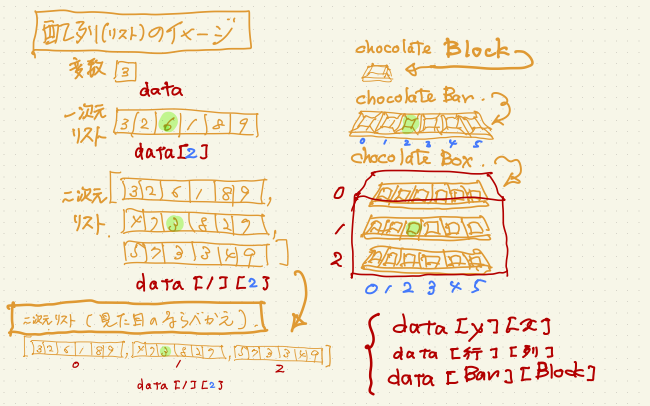 配列(リスト)のイメージ
変数 3
data
一次元リスト 3 2 6 1 8 9
data[2]
二次元リスト [3 2 6 1 8 9,
4 7 3 8 2 9,
5 7 3 3 4 9]
data[1][2]
二次元リスト(見た目のならべかえ).
[3 2 6 1 8 9, 4 7 3 8 2 9, 5 7 3 3 4 9]
0 1 2
data[1][2]
chocolate Block
chocolate Bar.
0 1 2 3 4 5
chocolate Box.
0
1
2
0 1 2 3 4 5
data[y][x]
data[行][列]
data[Bar][Block]